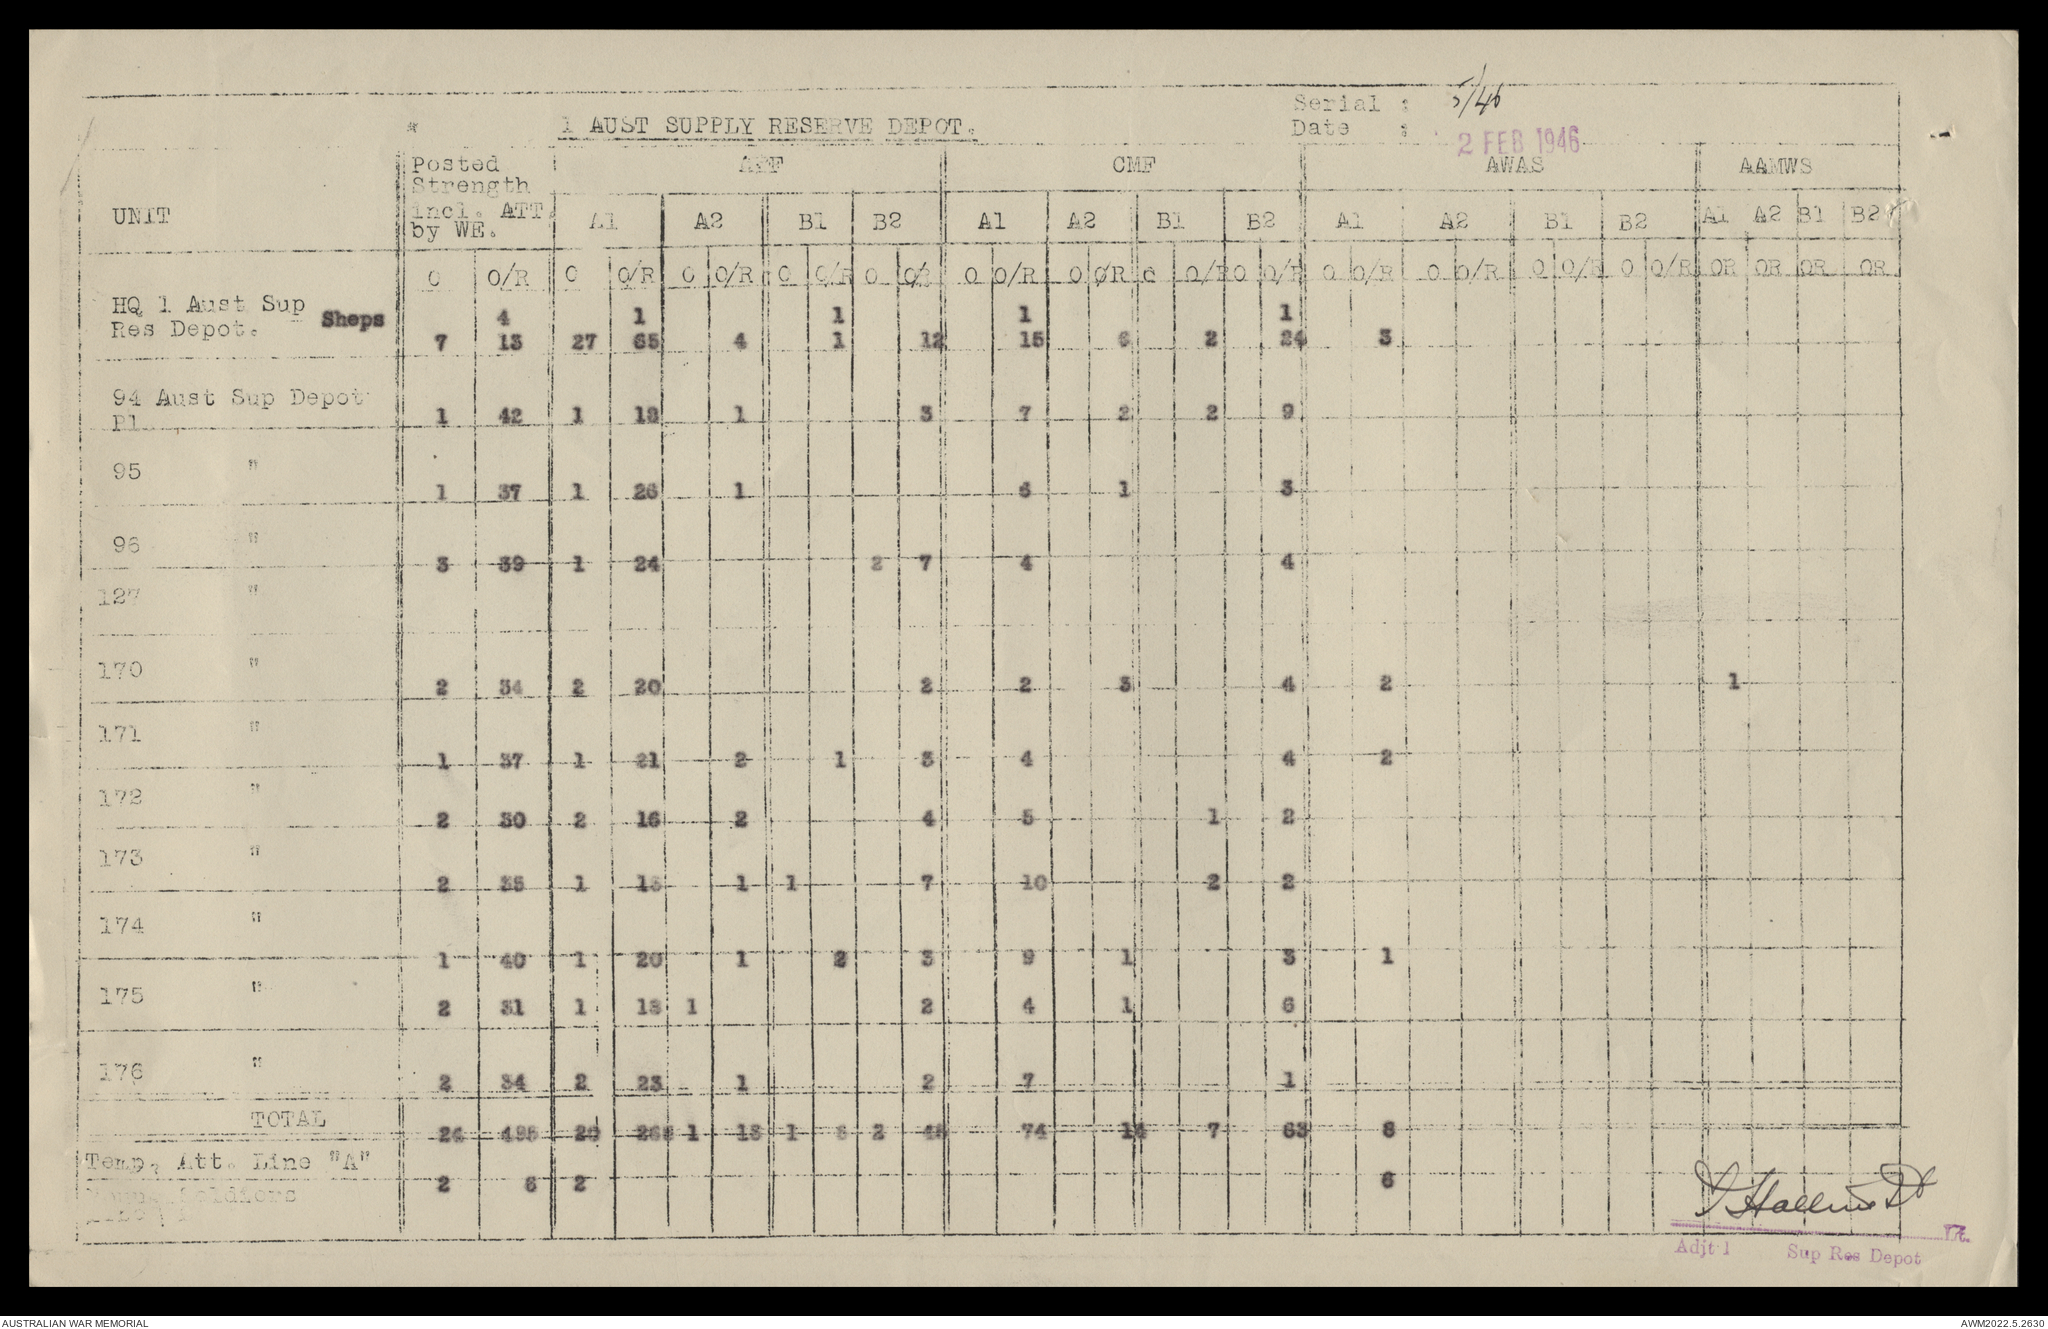 Serial : 5/46
* 1 AUST SUPPLY RESERVE DEPOT.
Date : 2 FEB 1946
UNIT Posted Strength incl. ATT. by WE. AIF CMF AWAS AAMWS
A1 A2 B1 B2 A1 A2 B1 B2 A1 A2 B1 B2 A1 A2 B1 B2
O O/R O O/R O O/R O O/R O O/R O O/R O O/R O O/R O O/R O O/R O O/R O O/R OR OR OR OR
HQ 1 Aust Sup Sheps 4 1 1 1 1
Res Depot. 7 13 27 65 4 1 12 15 6 2 24 3
94 Aust Sup Depot
Pl. 1 42 1 18 1 3 7 2 2 9
95 "
1 37 1 26 1 6 1 3
96 "
3 39 1 24 2 7 4 4
127 "
170 "
2 34 2 20 2 2 3 4 2 1
171 "
1 37 1 21 2 1 3 4 4 2
172 "
2 30 2 16 2 4 5 1 2
173 "
2 35 1 13 1 1 7 10 2 2
174 "
1 40 1 20 1 2 3 9 1 3 1
175 "
2 31 1 18 1 2 4 1 6
176 "
2 34 2 23 1 2 7 1
TOTAL
24 1 13 1 2 74 14 7 63 8
Temp. Att. Line "A"
2 6 2 6
Soldiers
Lt.
Adjt 1 Sup Res Depot
AUSTRALIAN WAR MEMORIAL
AWM2022.5.2630